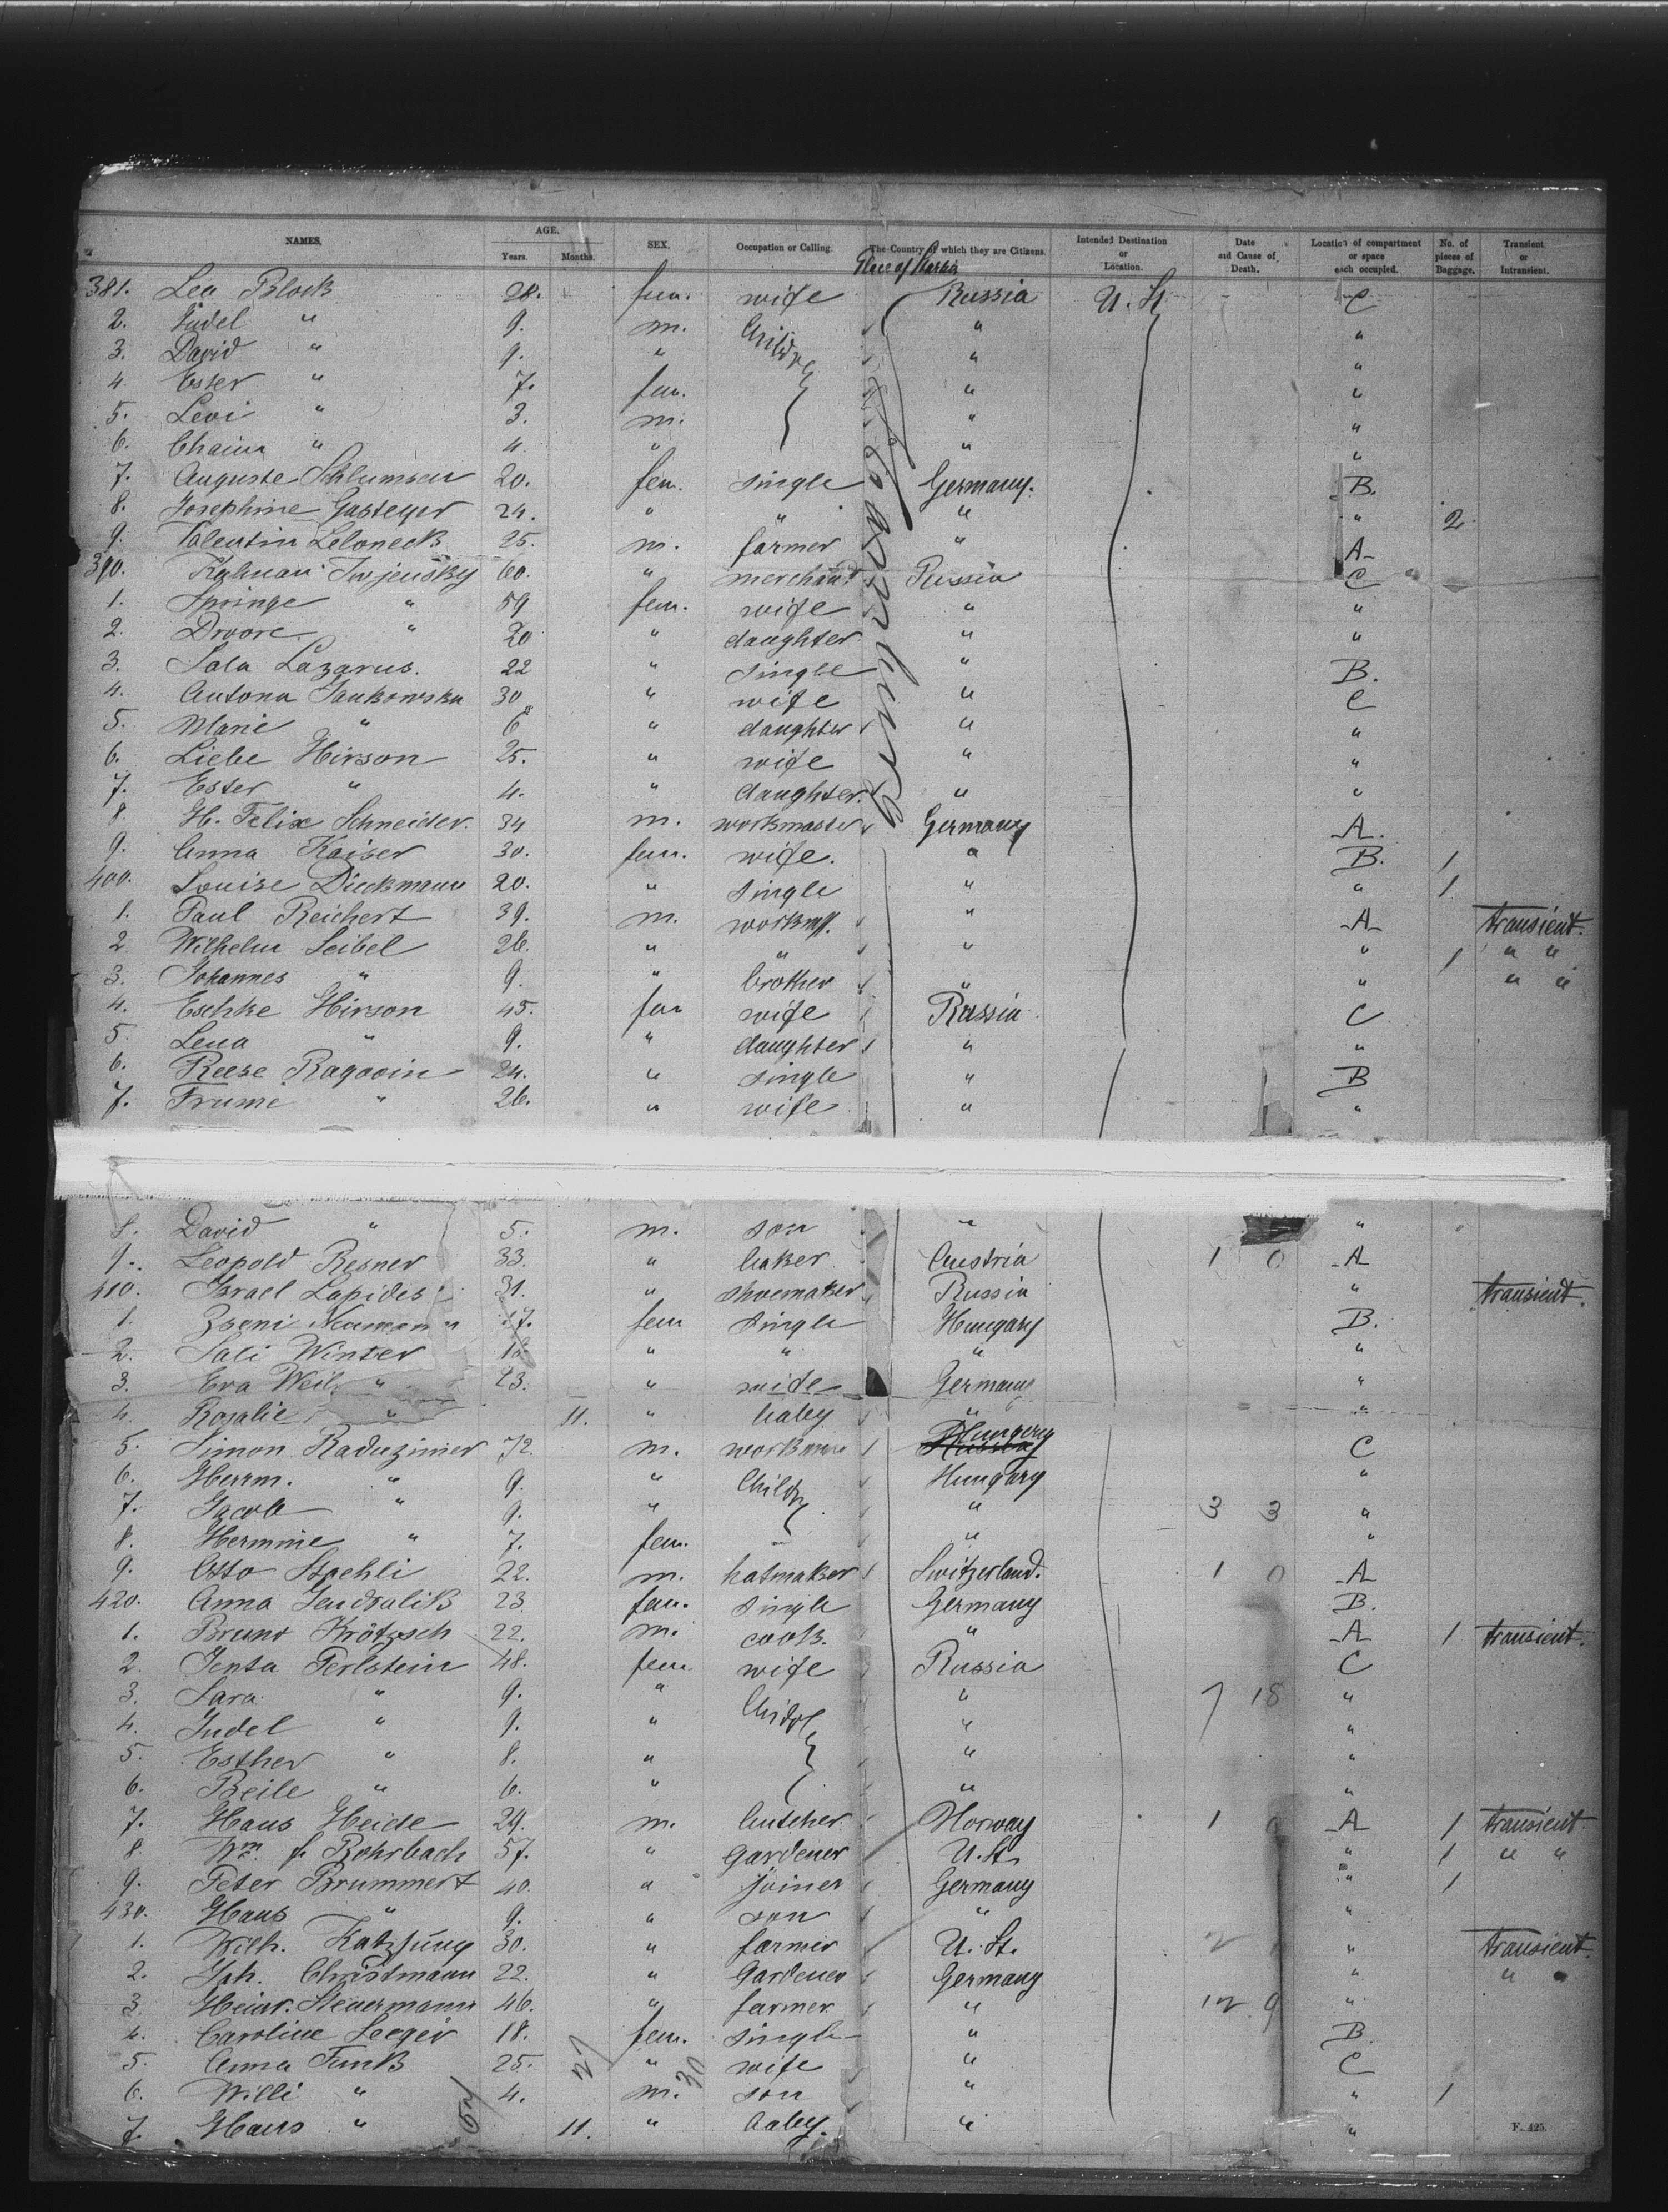 NAMES. AGE. Years. Months. SEX. Occupation or Calling. The Country of which they are Citizens. Intended Destination or Location. Date and Cause of Death. Location of compartment or space each occupied. No. of pieces of Baggage. Transient or Intransient.
Place of
381. Lea Block 28. fem. wife Russia U. St. C
2. Judel " 9. m. " "
3. David " 9. " " "
4. Ester " 7. fem. " "
5. Levi " 3. m. " "
6. Chaim " 4. " " "
7. Auguste Schlumsen 20. fem. single Germany. B.
8. Josephine Gasteyer 24. " " " " 2
9. Valentin Leloneck 25. m. farmer " A
390. Kalman Twjensky 60. " merchant Russia C
1. Springe " 59 fem. wife " "
2. Dwore " 20 " daughter " "
3. Sala Lazarus. 22 " single " B.
4. Antona Jankowska 30 " wife " C
5. Marie " 6 " daughter " "
6. Liebe Hirson 25. " wife " "
7. Ester " 4. " daughter. " "
8. H. Felix Schneider. 34 m. workmaster Germany A.
9. Anna Kaiser 30. fem. wife. " B. 1
400. Louise Dieckmann 20. " single " " 1
1. Paul Reichert 39. m. " A transient.
2. Wilhelm Seibel 26. " " " " 1 " "
3. Johannes " 9. " brother " " " "
4. Eschke Hirson 45. fem wife Russia C
5. Lena " 9. " daughter " "
6. Reese Ragowin 24. " single " B
7. Frume " 26. " wife " "
8. David " 5. m. son " "
9. Leopold Resner 33. " baker Austria 1 0 A
410. Israel Lapides 31. " shoemaker Russia " transient.
1. Neumann 17. fem single Hungary B.
2. Sali Winter " " " "
3. Eva Weil " 23. " wife Germany "
4. Rosalie " 11. " baby " "
5. Simon Raduzimer 72. m. workman Hungary C
6. Herrm. " 9. " Hungary "
7. Jacob " 9. " " 3 3 "
8. Hermine " 7. fem. " "
9. Otto Staehli 22. m. hatmaker Switzerland. 1 0 A
420. Anna Jendralik 23. fem. single Germany B.
1. Bruno Krötzsch 22. m. cook. " A 1 transient.
2. Jenta Perlstein 48. fem wife Russia C
3. Sara " 9. " " 7 18 "
4. Judel " 9. " " "
5. Esther " 8. " " "
6. Beile " 6. " " "
7. Hans Heide 29. m. butcher Norway 1 0 A 1 transient
8. Wm. f. Rohrbach 57. " gardener U. St. " 1 " "
9. Peter Brummert 40. " joiner Germany " 1
430. Hans " 9. " son " "
1. Wilh. Katzjung 30. " farmer U. St. 2 " transient.
2. Joh. Christmann 22. " gardener Germany " " "
3. Heinr. Steuermann 46. " farmer " 12 9 "
4. Caroline Seeger 18. fem. single " B.
5. Anna Funk 25. " wife " C
6. Willi " 4. m. son " " 1
7. Hans " 11. " baby. " "
57 27 30
F. 425.